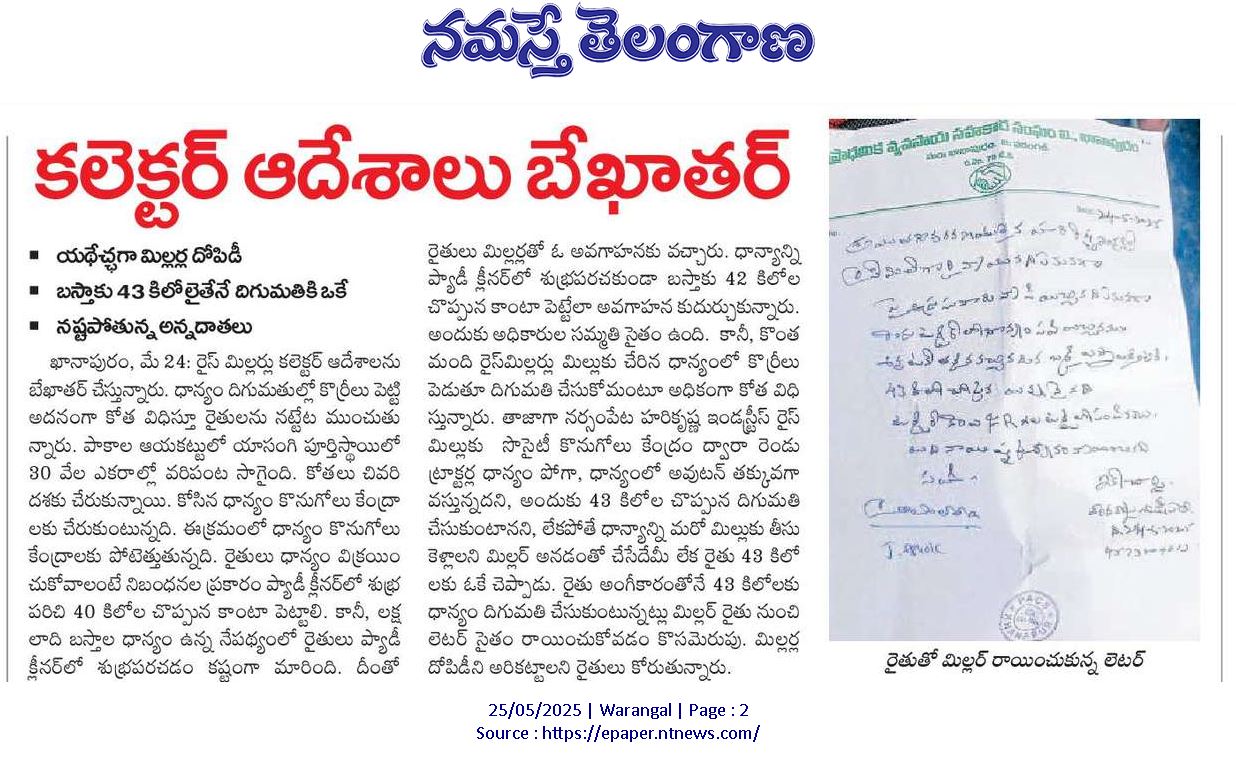 నమస్తే తెలంగాణ
కలెక్టర్ ఆదేశాలు బేఖాతర్
యథేచ్ఛగా మిల్లర్ల దోపిడీ
బస్తాకు 43 కిలోలైతేనే దిగుమతికి ఒకే
నష్టపోతున్న అన్నదాతలు
ఖానాపురం, మే 24: రైస్ మిల్లర్లు కలెక్టర్ ఆదేశాలను
బేఖాతర్ చేస్తున్నారు. ధాన్యం దిగుమతుల్లో కొర్రీలు పెట్టి
అదనంగా కోత విధిస్తూ రైతులను నట్టేట ముంచుతు
న్నారు. పాకాల ఆయకట్టులో యాసంగి పూర్తిస్థాయిలో
30 వేల ఎకరాల్లో వరిపంట సాగైంది. కోతలు చివరి
దశకు చేరుకున్నాయి. కోసిన ధాన్యం కొనుగోలు కేంద్రా
లకు చేరుకుంటున్నది. ఈక్రమంలో ధాన్యం కొనుగోలు
కేంద్రాలకు పోటెత్తుతున్నది. రైతులు ధాన్యం విక్రయిం
చుకోవాలంటే నిబంధనల ప్రకారం ప్యాడీ క్లీనర్‌లో శుభ్ర
పరిచి 40 కిలోల చొప్పున కాంటా పెట్టాలి. కానీ, లక్ష
లాది బస్తాల ధాన్యం ఉన్న నేపథ్యంలో రైతులు ప్యాడీ
క్లీనర్‌లో శుభ్రపరచడం కష్టంగా మారింది. దీంతో
రైతులు మిల్లర్లతో ఓ అవగాహనకు వచ్చారు. ధాన్యాన్ని
ప్యాడీ క్లీనర్‌లో శుభ్రపరచకుండా బస్తాకు 42 కిలోల
చొప్పున కాంటా పెట్టేలా అవగాహన కుదుర్చుకున్నారు.
అందుకు అధికారుల సమ్మతి సైతం ఉంది. కానీ, కొంత
మంది రైస్‌మిల్లర్లు మిల్లుకు చేరిన ధాన్యంలో కొర్రీలు
పెడుతూ దిగుమతి చేసుకోమంటూ అధికంగా కోత విధి
స్తున్నారు. తాజాగా నర్సంపేట హరికృష్ణ ఇండస్ట్రీస్ రైస్
మిల్లుకు సొసైటీ కొనుగోలు కేంద్రం ద్వారా రెండు
ట్రాక్టర్ల ధాన్యం పోగా, ధాన్యంలో అవుటన్ తక్కువగా
వస్తున్నదని, అందుకు 43 కిలోల చొప్పున దిగుమతి
చేసుకుంటానని, లేకపోతే ధాన్యాన్ని మరో మిల్లుకు తీసు
కెళ్లాలని మిల్లర్ అనడంతో చేసేదేమీ లేక రైతు 43 కిలో
లకు ఓకే చెప్పాడు. రైతు అంగీకారంతోనే 43 కిలోలకు
ధాన్యం దిగుమతి చేసుకుంటున్నట్లు మిల్లర్ రైతు నుంచి
లెటర్ సైతం రాయించుకోవడం కొసమెరుపు. మిల్లర్ల
దోపిడీని అరికట్టాలని రైతులు కోరుతున్నారు.
ప్రాథమిక వ్యవసాయ సహకార సంఘం
24-5-2025
రైతుతో మిల్లర్ రాయించుకున్న లెటర్
25/05/2025 | Warangal | Page : 2
Source : https://epaper.ntnews.com/